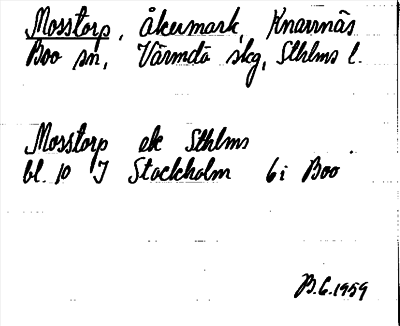 Mosstorp, Åkermark, Knarrnäs
Boo sn, Värmdö skg, Sthlms l.
Mosstorp ek Sthlms
bl. 10 I Stockholm 6i Boo
B.G. 1959